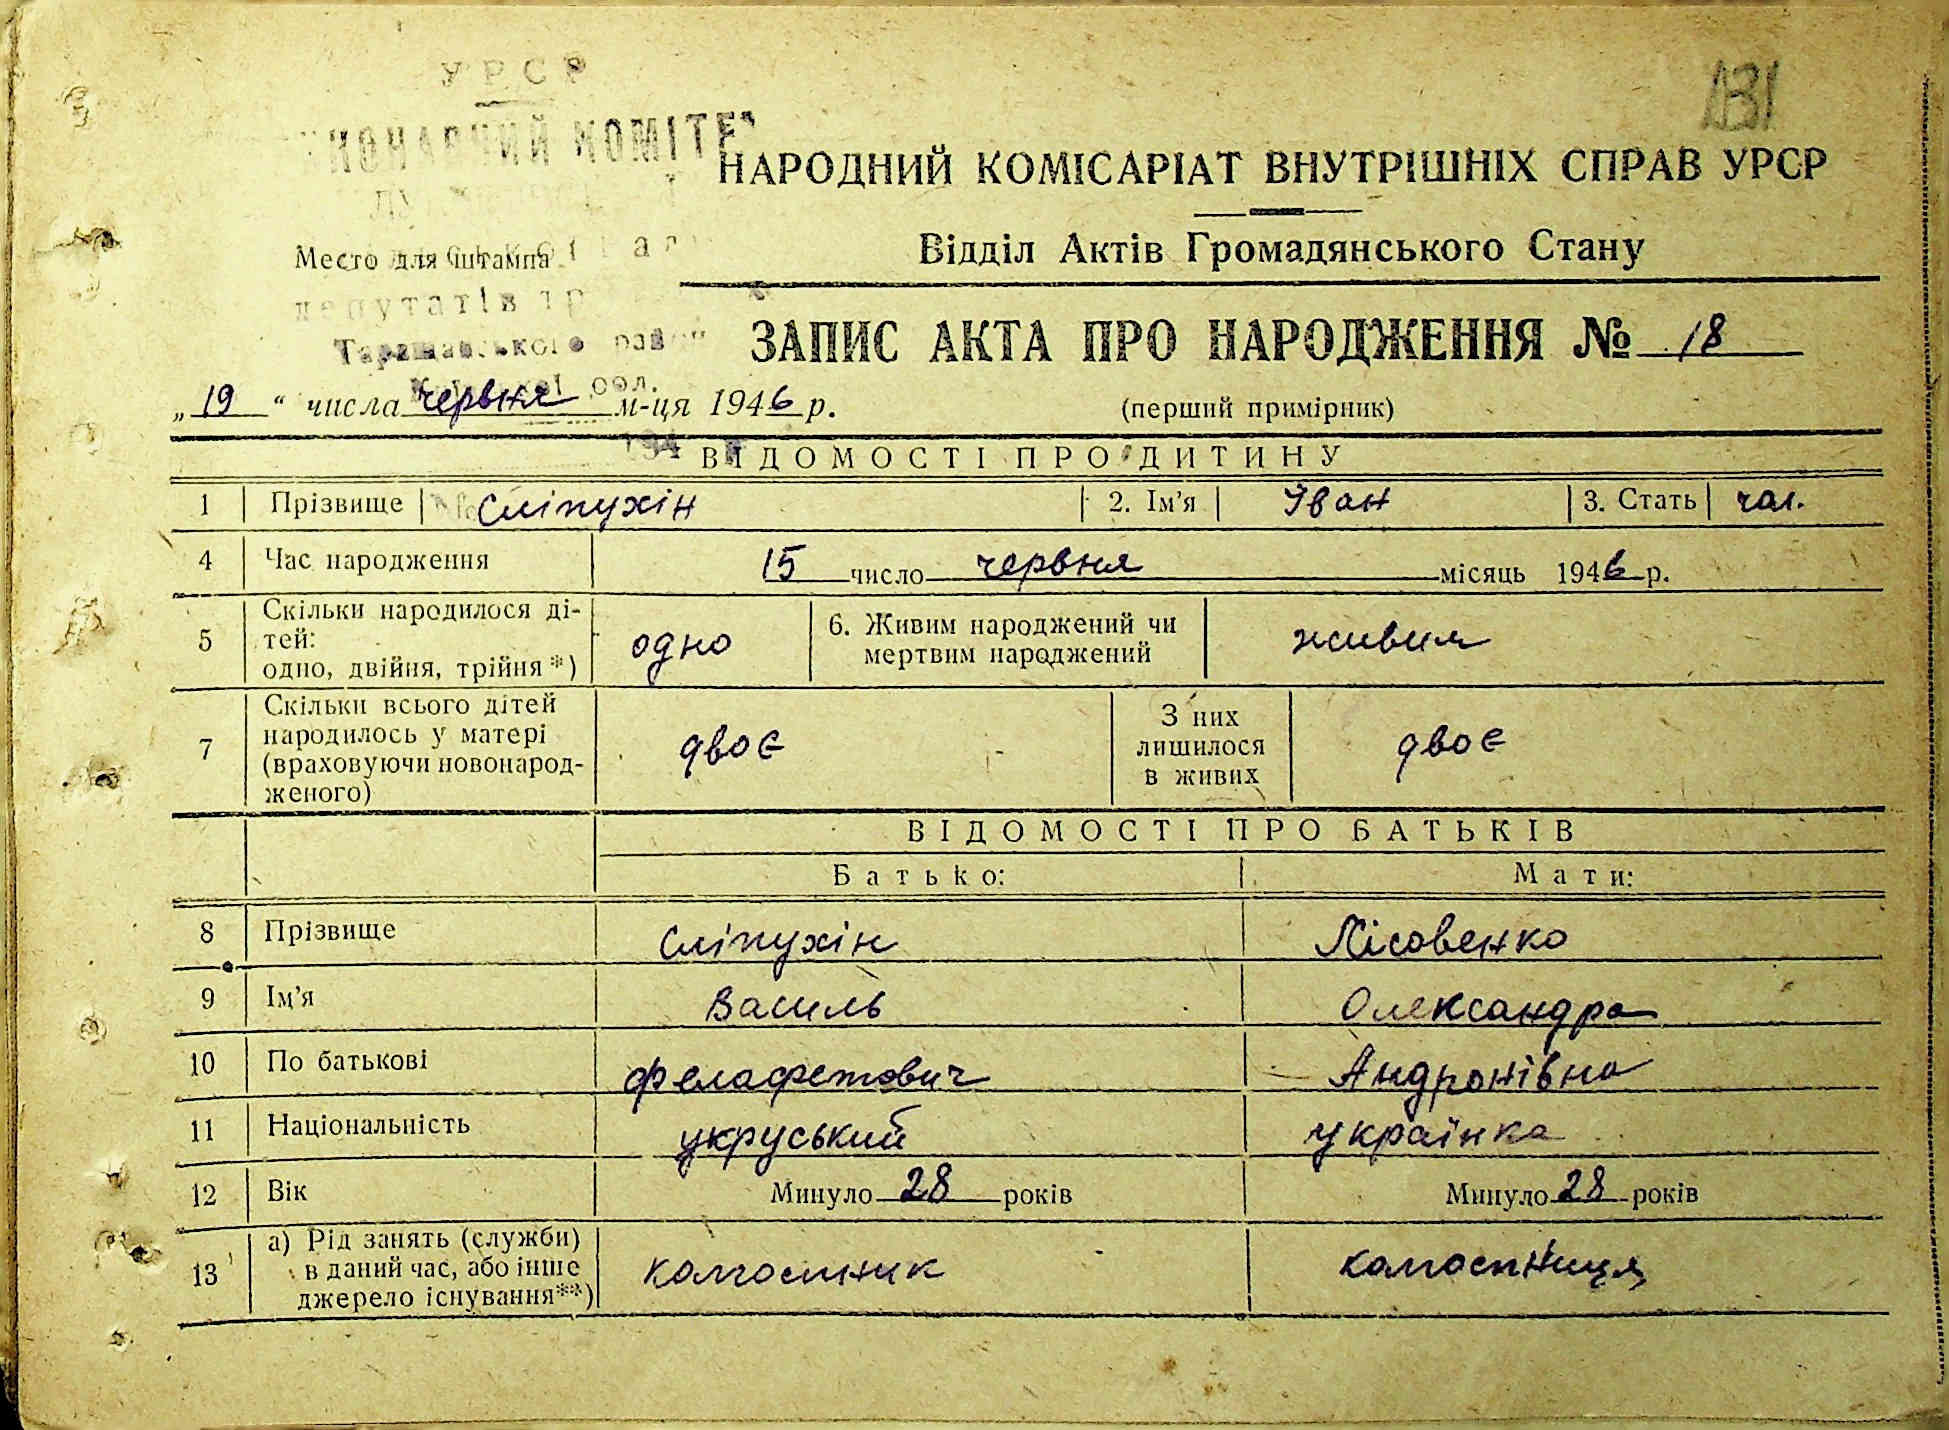 УРСР
131
НАРОДНИЙ КОМІСАРІАТ ВНУТРІШНІХ СПРАВ УРСР
Відділ Актів Громадянського Стану
Место для штампа
депутатів
Таращанського
обл.
ЗАПИС АКТА ПРО НАРОДЖЕННЯ № 18
„19“ числа червня м-ця 1946 р.
(перший примірник)
ВІДОМОСТІ ПРО ДИТИНУ
1 Прізвище Сліпухін 2. Ім'я Іван 3. Стать чол.
4 Час народження 15 число червня місяць 1946 р.
5 Скільки народилося ді-
тей:
одно, двійня, трійня*) одно
6. Живим народжений чи
мертвим народжений живим
7 Скільки всього дітей
народилось у матері
(враховуючи новонарод-
женого) двоє
З них
лишилося
в живих двоє
ВІДОМОСТІ ПРО БАТЬКІВ
Батько: Мати:
8 Прізвище Сліпухін Лісовенко
9 Ім'я Василь Олександра
10 По батькові Фелафетович Андронівна
11 Національність укруський українка
12 Вік Минуло 28 років Минуло 28 років
13 а) Рід занять (служби)
в даний час, або інше
джерело існування**) колгоспник колгоспниця